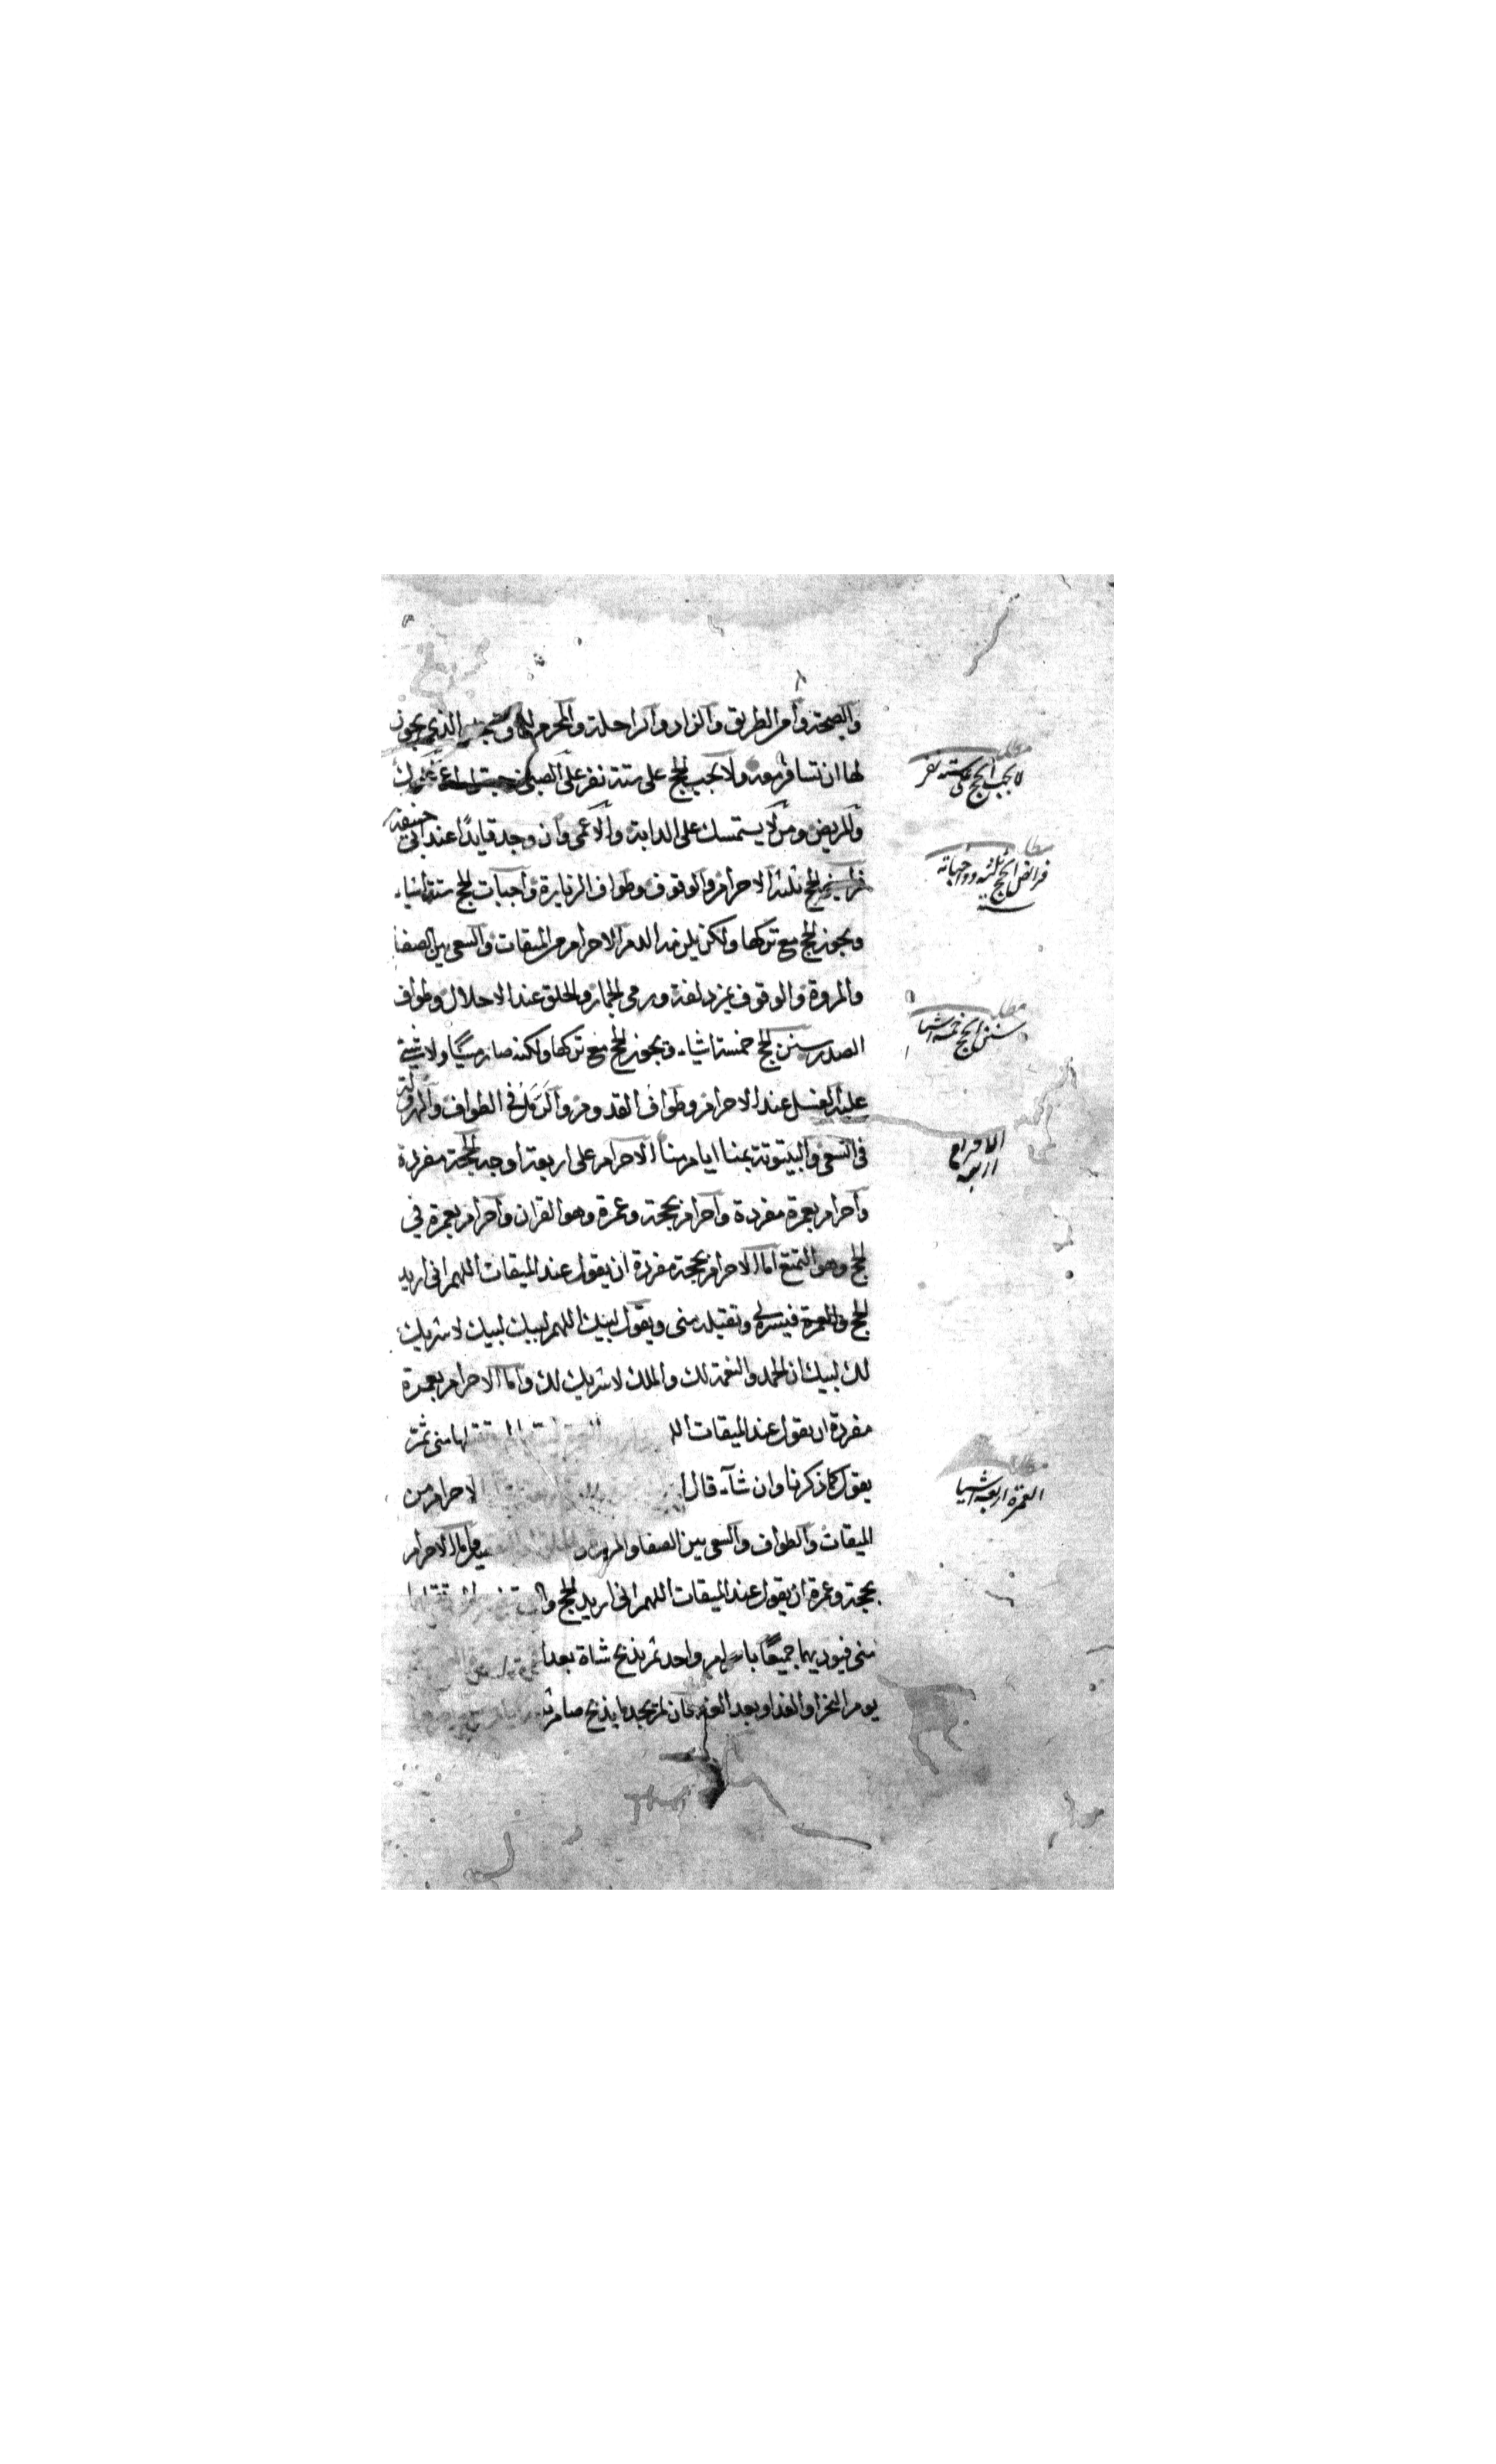 والصحة وامن الطريق والزاد والراحلة والمحرم الذي يجوز
لها ان تسافر معه ولا يجب الحج على ستة نفر على الصبي
والمريض ومن لا يستمسك على الدابة والاعمى وان وجد قايدا عند ابي حنيفة
فرايض الحج ثلثة الاحرام والوقوف وطواف الزيارة واجبات الحج ستة اشياء
ويجوز الحج مع تركها ولكن يلزمه الدم الاحرام من الميقات والسعي بين الصفا
والمروة والوقوف بمزدلفة ورمي الجمار والحلق عند الاحلال وطواف
الصدر سنن الحج خمسة اشياء ويجوز الحج مع تركها ولكنه صار مسيا ولا شيء
عليه الغسل عند الاحرام وطواف القدوم والرمل في الطواف والهرولة
في السعي والبيتوتة بمنا ايام منا الاحرام على اربعة اوجه الحجة مفردة
واحرام بعمرة مفردة واحرام بحجة وعمرة وهو القران واحرام بعمرة في
الحج وهو التمتع اما الاحرام بحجة مفردة ان يقول عند الميقات اللهم اني اريد
الحج والعمرة فيسره لي وتقبله مني ويقول لبيك اللهم لبيك لبيك لا شريك
لك لبيك ان الحمد والنعمة لك والملك لا شريك لك واما الاحرام بعمرة
مفردة ان يقول عند الميقات مني ثم
يقول كما ذكرنا وان شآء قال الاحرام من
الميقات والطواف والسعي بين الصفا والمروة واما الاحرام
بحجة وعمرة ان يقول عند الميقات اللهم اني اريد الحج
مني فيوديهما جميعا باحرام واحد ثم يذبح شاة بعد
يوم النحر او الغد او بعد الغد فان لم يجد ما يذبح صام
مطلب
لا يجب الحج على ستة نفر
مطلب
فرائض الحج ثلثة وواجباته
ستة
مطلب
سنن الحج خمسة اشيا
الاحرام
اربعة
مطلب
العمرة اربعة اشيا